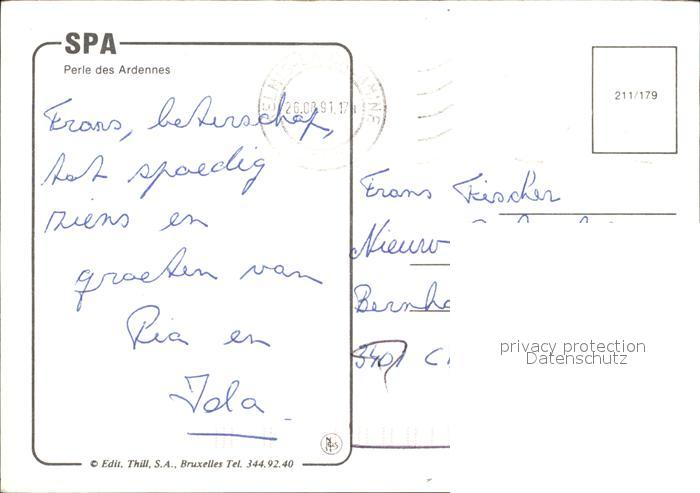 SPA
Perle des Ardennes
Frans, beterschap,
tot spoedig
ziens en
groeten van
Ria en
26.08.91.17
211/179
Frans Fischer
Nieuw
Bernha
3401 C
privacy protection
Datenschutz
© Edit. Thill, S.A., Bruxelles Tel. 344.92.40